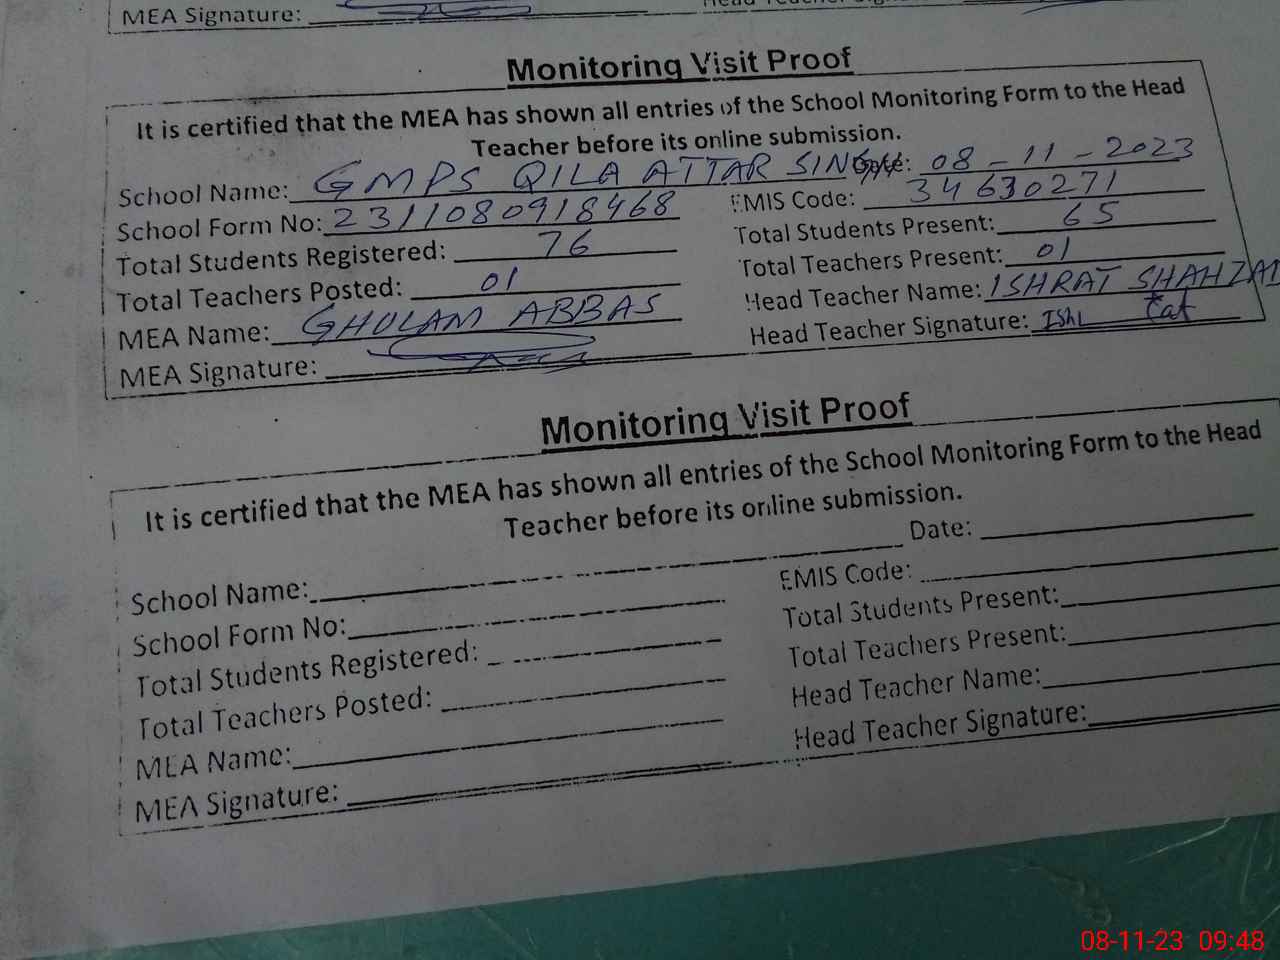 MEA Signature:
Monitoring Visit Proof
It is certified that the MEA has shown all entries of the School Monitoring Form to the Head
Teacher before its online submission.
School Name: GMPS QILA ATTAR SINGH Date: 08-11-2023
School Form No: 2311080918468 EMIS Code: 34630271
Total Students Registered: 76 Total Students Present: 65
Total Teachers Posted: 01 Total Teachers Present: 01
MEA Name: GHULAM ABBAS Head Teacher Name: ISHRAT SHAHZAD
MEA Signature: Head Teacher Signature:
Monitoring Visit Proof
It is certified that the MEA has shown all entries of the School Monitoring Form to the Head
Teacher before its online submission.
School Name: Date:
School Form No: EMIS Code:
Total Students Registered: Total Students Present:
Total Teachers Posted: Total Teachers Present:
MEA Name: Head Teacher Name:
MEA Signature: Head Teacher Signature:
08-11-23 09:48